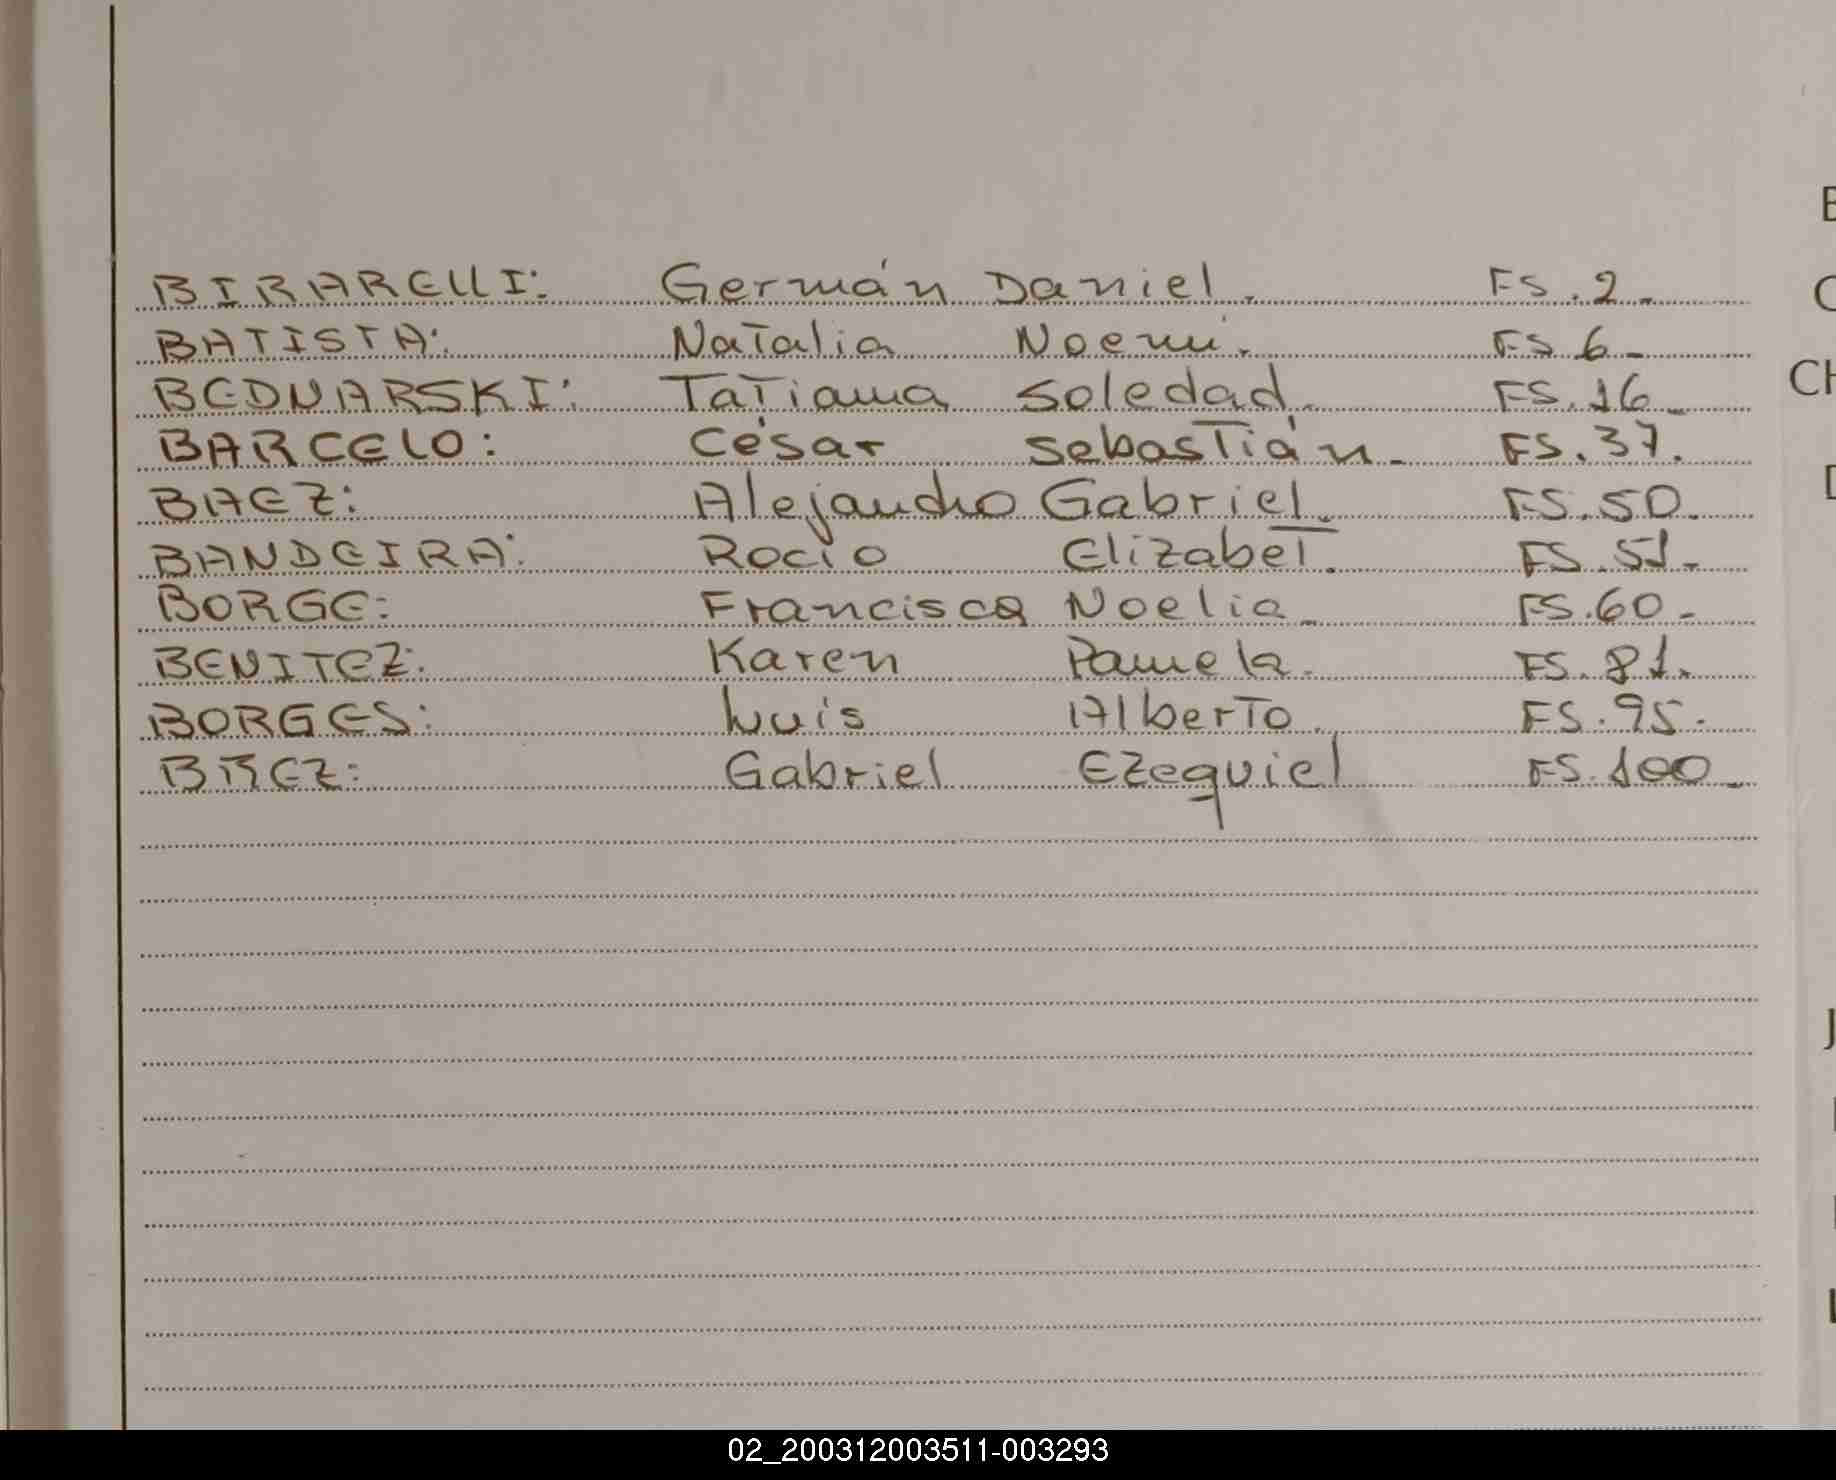 BIRARELLI: Germán Daniel. FS. 2.
BATISTA: Natalia Noemí. FS 6.
BEDNARSKI: Tatiana Soledad. FS. 16.
BARCELO: César Sebastián. FS. 37.
BAEZ: Alejandro Gabriel. FS. 50.
BANDEIRA: Rocio Elizabet. FS. 51.
BORGE: Francisca Noelia. FS. 60.
BENITEZ: Karen Pamela. FS. 81.
BORGES: Luis Alberto. FS. 95.
BAEZ: Gabriel Ezequiel FS. 100.
CH
J
02_200312003511-003293